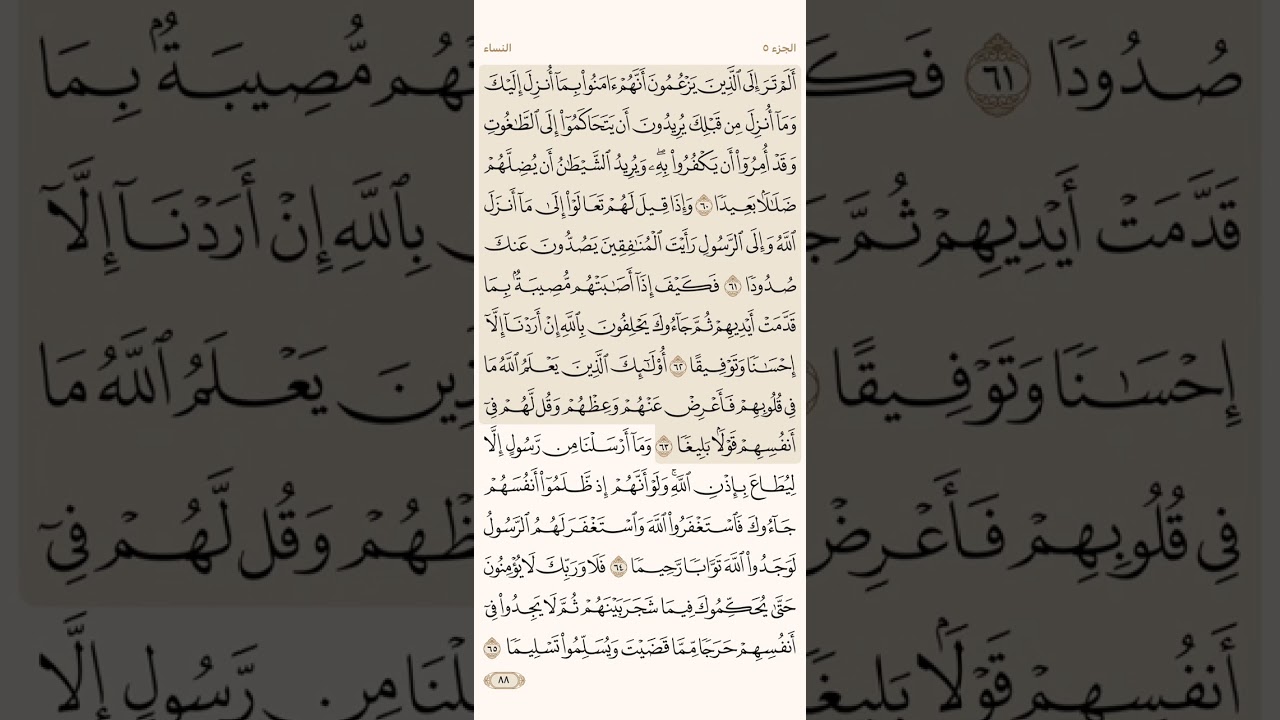 الجزء ٥
النساء
أَلَمْ تَرَ إِلَى ٱلَّذِينَ يَزْعُمُونَ أَنَّهُمْ ءَامَنُوا۟ بِمَآ أُنزِلَ إِلَيْكَ
وَمَآ أُنزِلَ مِن قَبْلِكَ يُرِيدُونَ أَن يَتَحَاكَمُوٓا۟ إِلَى ٱلطَّـٰغُوتِ
وَقَدْ أُمِرُوٓا۟ أَن يَكْفُرُوا۟ بِهِۦۖ وَيُرِيدُ ٱلشَّيْطَـٰنُ أَن يُضِلَّهُمْ
ضَلَـٰلًۢا بَعِيدًا ٦٠ وَإِذَا قِيلَ لَهُمْ تَعَالَوْا۟ إِلَىٰ مَآ أَنزَلَ
ٱللَّهُ وَإِلَى ٱلرَّسُولِ رَأَيْتَ ٱلْمُنَـٰفِقِينَ يَصُدُّونَ عَنكَ
صُدُودًا ٦١ فَكَيْفَ إِذَآ أَصَـٰبَتْهُم مُّصِيبَةٌۢ بِمَا
قَدَّمَتْ أَيْدِيهِمْ ثُمَّ جَآءُوكَ يَحْلِفُونَ بِٱللَّهِ إِنْ أَرَدْنَآ إِلَّآ
إِحْسَـٰنًا وَتَوْفِيقًا ٦٢ أُو۟لَـٰٓئِكَ ٱلَّذِينَ يَعْلَمُ ٱللَّهُ مَا
فِى قُلُوبِهِمْ فَأَعْرِضْ عَنْهُمْ وَعِظْهُمْ وَقُل لَّهُمْ فِىٓ
أَنفُسِهِمْ قَوْلًۢا بَلِيغًا ٦٣ وَمَآ أَرْسَلْنَا مِن رَّسُولٍ إِلَّا
لِيُطَاعَ بِإِذْنِ ٱللَّهِۚ وَلَوْ أَنَّهُمْ إِذ ظَّلَمُوٓا۟ أَنفُسَهُمْ
جَآءُوكَ فَٱسْتَغْفَرُوا۟ ٱللَّهَ وَٱسْتَغْفَرَ لَهُمُ ٱلرَّسُولُ
لَوَجَدُوا۟ ٱللَّهَ تَوَّابًا رَّحِيمًا ٦٤ فَلَا وَرَبِّكَ لَا يُؤْمِنُونَ
حَتَّىٰ يُحَكِّمُوكَ فِيمَا شَجَرَ بَيْنَهُمْ ثُمَّ لَا يَجِدُوا۟ فِىٓ
أَنفُسِهِمْ حَرَجًا مِّمَّا قَضَيْتَ وَيُسَلِّمُوا۟ تَسْلِيمًا ٦٥
٨٨
صُدُودًا ٦١ فَكَ
هُم مُّصِيبَةٌۢ بِمَا
قَدَّمَتْ أَيْدِيهِمْ ثُمَّ جَ
بِٱللَّهِ إِنْ أَرَدْنَآ إِلَّآ
إِحْسَـٰنًا وَتَوْفِيقًا
ذِينَ يَعْلَمُ ٱللَّهُ مَا
فِى قُلُوبِهِمْ فَأَعْرِضْ
ظْهُمْ وَقُل لَّهُمْ فِىٓ
أَنفُسِهِمْ قَوْلًۢا بَلِيغَا
لْنَا مِن رَّسُولٍ إِلَّا